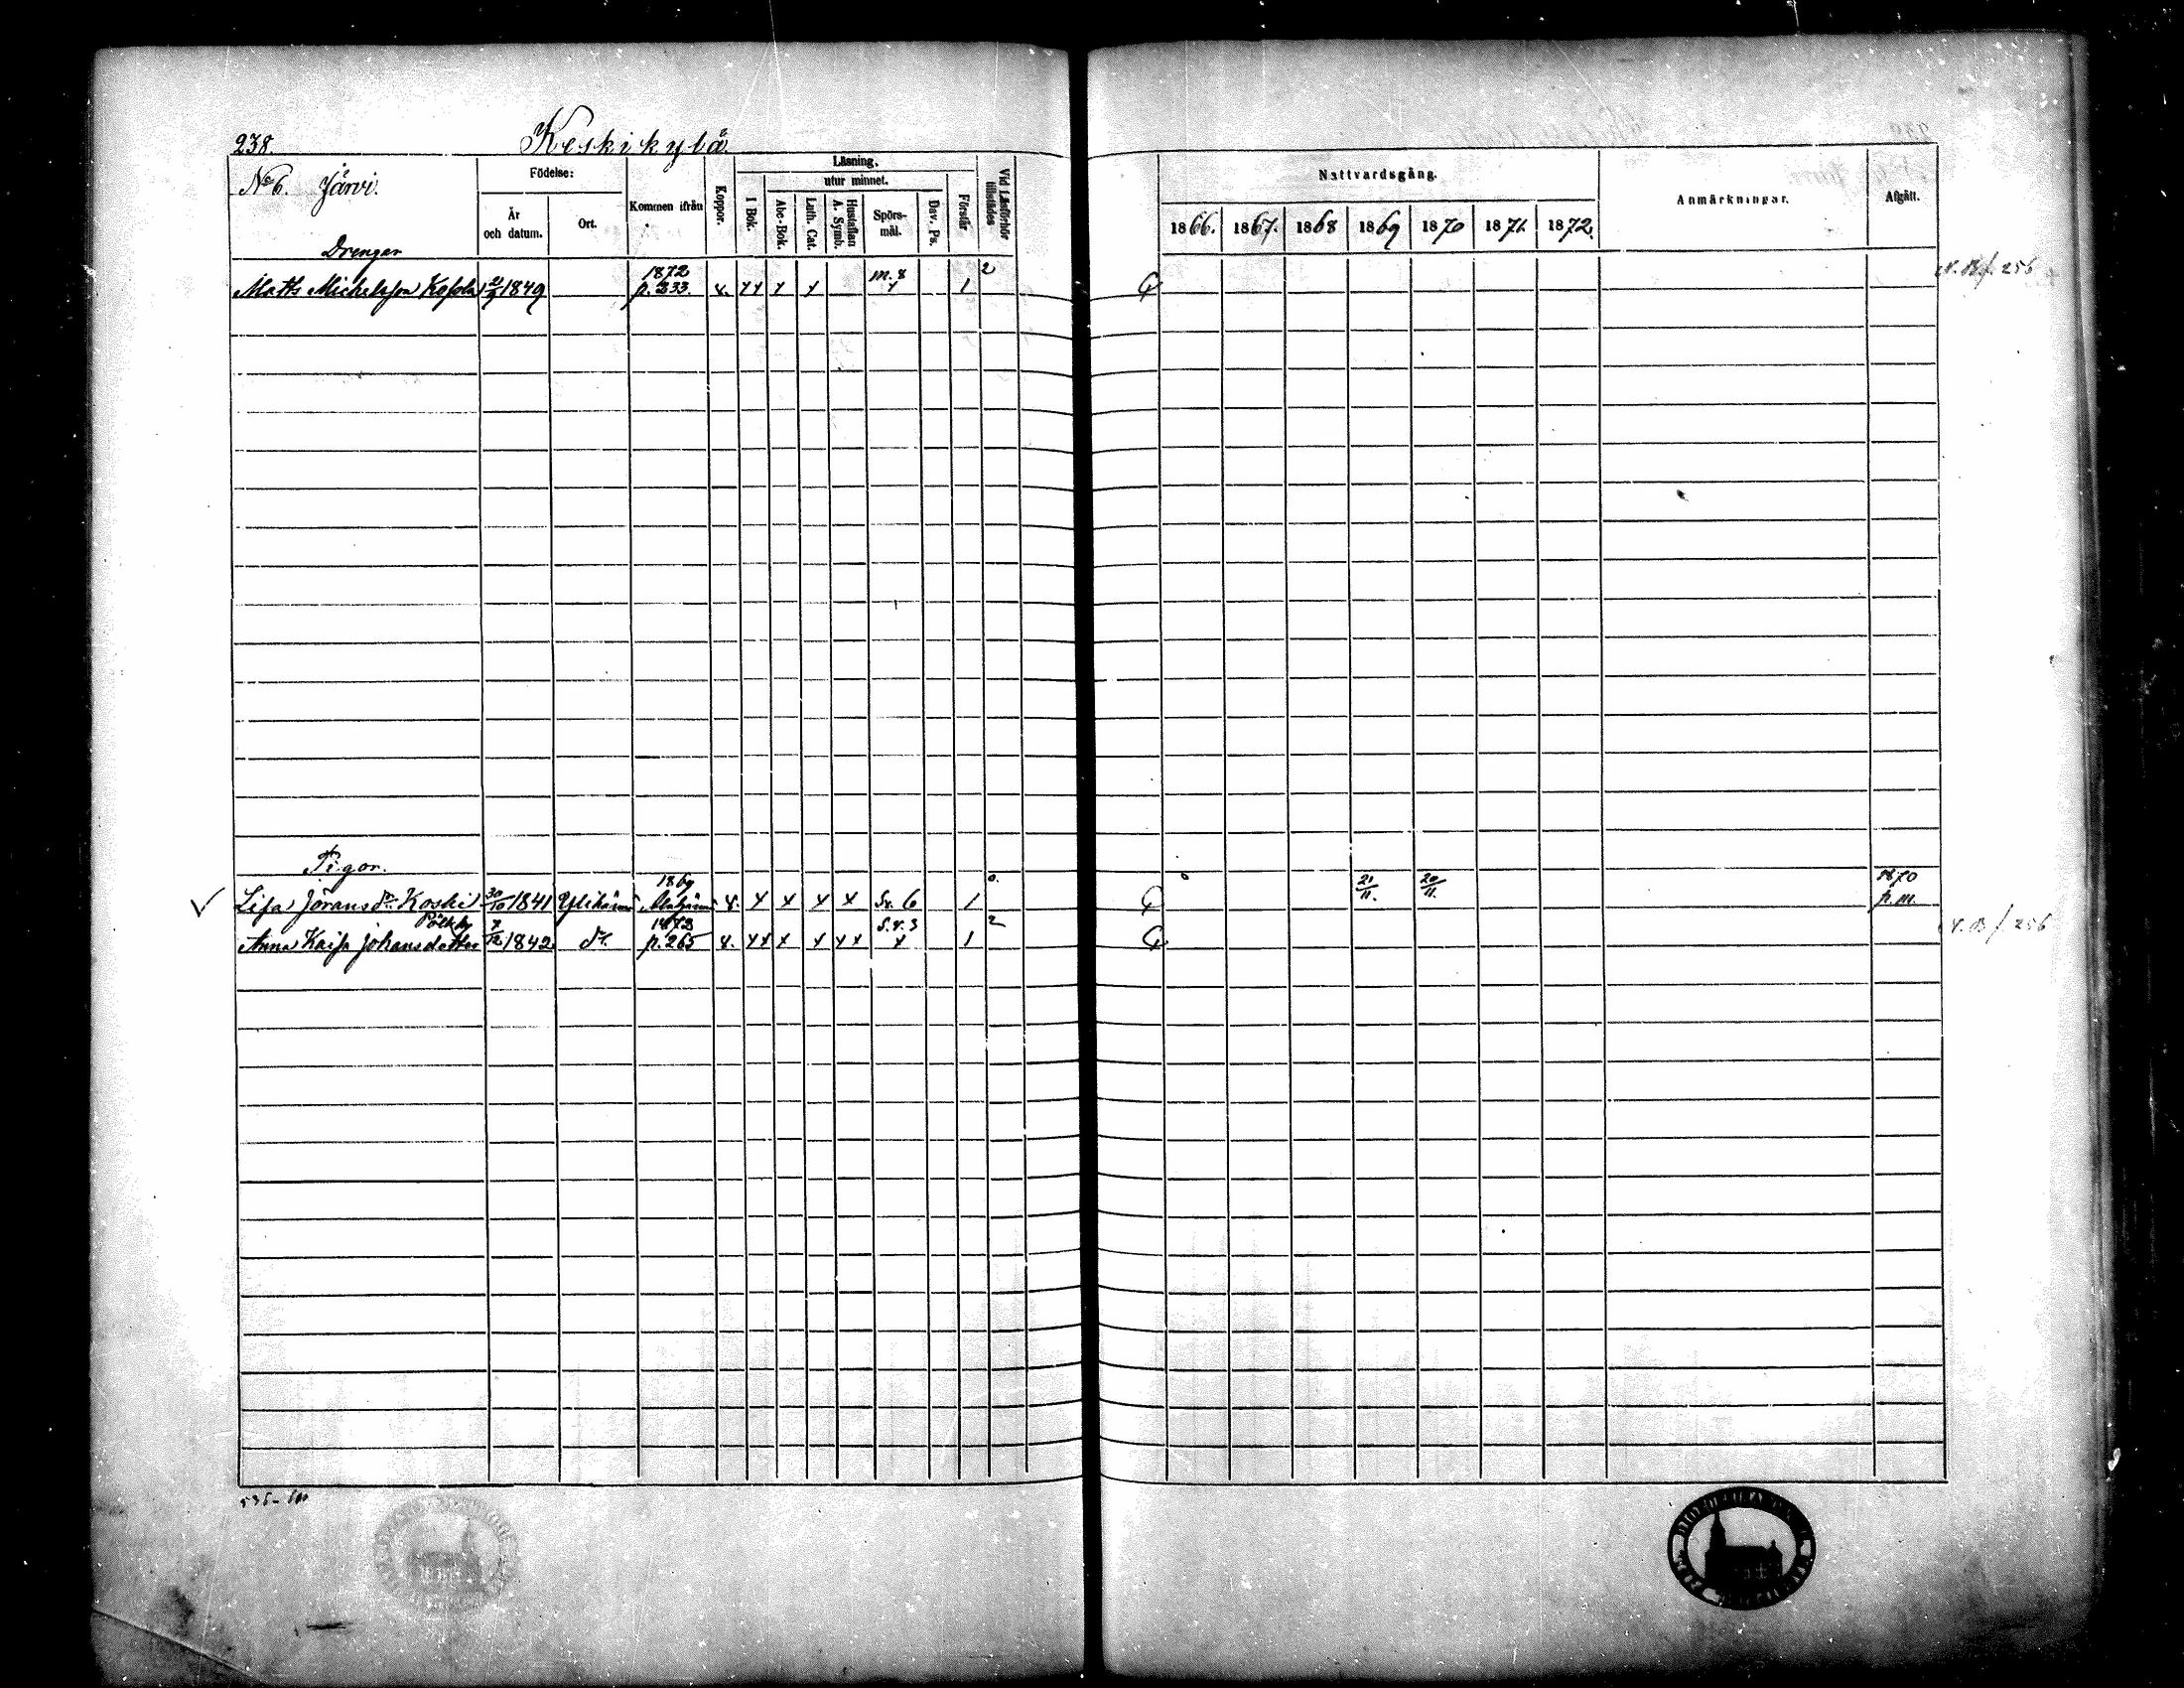 238.
Keskikylä
No 6. Järvi.
Födelse:
År och datum.
Ort.
Kommen ifrån
Koppor.
Läsning.
I Bok.
utur minnet.
Abc-Bok.
Luth. Cat.
Hustaflan A. Symb.
Spörs-mål.
Dav. Ps.
Förstår
Vid Läsförhör tillstädes
Nattvardsgång.
1866. 1867. 1868 1869 1870 1871. 1872.
Anmärkningar.
Afgått.
Drengar
Matts Michelsson Kosola 1849 1872 p. 233. x. xx x x m. 8 x 1 2
N. B. f. 256
Pigor.
Lisa Jöransdr Koski 30/10 1841 Ylihärmä 1869 x. x x x x Sv. 6 1 0. 21/11. 20/11. 1870 p. m.
Anna Kaisa Johansdotter Pölkky 7/12 1842 dr. 1872 p. 265 x. xx x x xx S. v. 3 x 1 2
N. B. f. 256